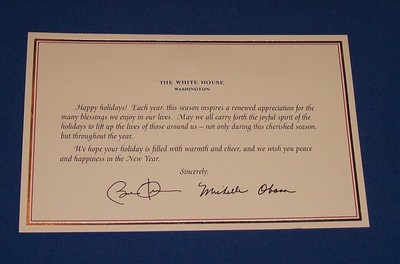 THE WHITE HOUSE
WASHINGTON
Happy holidays! Each year, this season inspires a renewed appreciation for the
many blessings we enjoy in our lives. May we all carry forth the joyful spirit of the
holidays to lift up the lives of those around us – not only during this cherished season,
but throughout the year.
We hope your holiday is filled with warmth and cheer, and we wish you peace
and happiness in the New Year.
Sincerely,
Michelle Obama